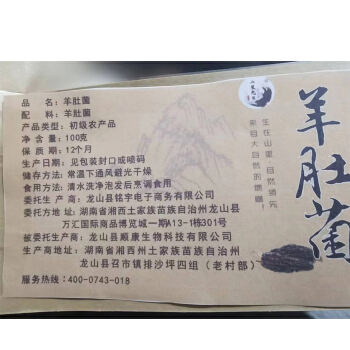 品 名：羊肚菌
配 料：羊肚菌
产品类型：初级农产品
净 含 量：100克
保 质 期：12个月
生产日期：见包装封口或喷码
储存方法：常温下通风避光干燥
食用方法：清水洗净泡发后烹调食用
委托生产商：龙山县铭宇电子商务有限公司
委托方地址：湖南省湘西土家族苗族自治州龙山县
万汇国际商品博览城一期A13-1栋301号
被委托生产商：龙山县顺康生物科技有限公司
生产商地址：湖南省湘西州土家族苗族自治州
龙山县召市镇排沙坪四组（老村部）
服务热线：400-0743-018
生在山里·自然领先
来自大自然的馈赠！
羊肚菌